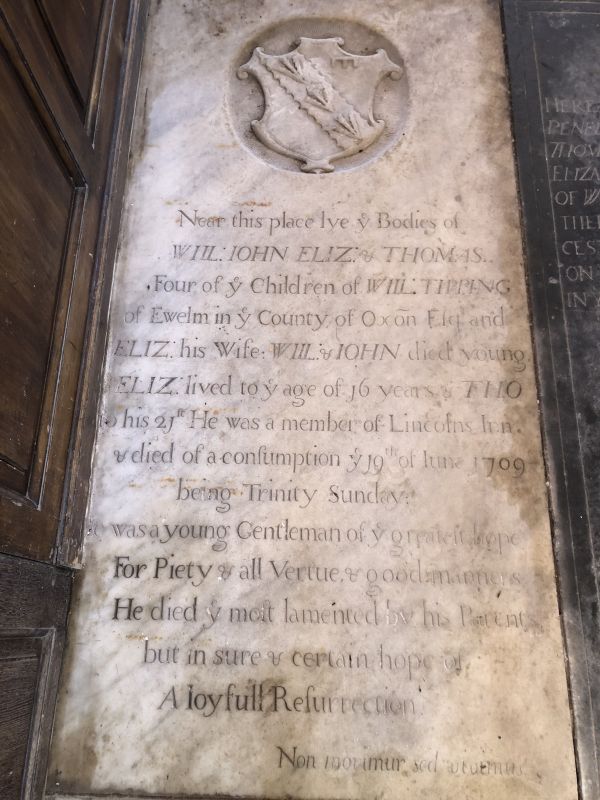 Near this place lye ẏ Bodies of
WILL: IOHN ELIZ: & THOMAS.
Four of ẏ Children of WILL: TIPPING
of Ewelm in ẏ County of Oxon̄ Esq and
ELIZ: his Wife: WILL: & IOHN died young
ELIZ: lived to ẏ age of 16 years & THO
his 21st He was a member of Lincolns Inn.
& died of a conſumption ẏ 19th of Iune 1709
being Trinity Sunday:
was a young Gentleman of ẏ greatest hope
For Piety & all Vertue, & good manners
He died ẏ moſt lamented by his Parents
but in sure & certain hope of
A Ioyfull Reſurrection.
Non morimur sed
HERE
THOM
ELIZA
OF W
THE
CES
ON
IN